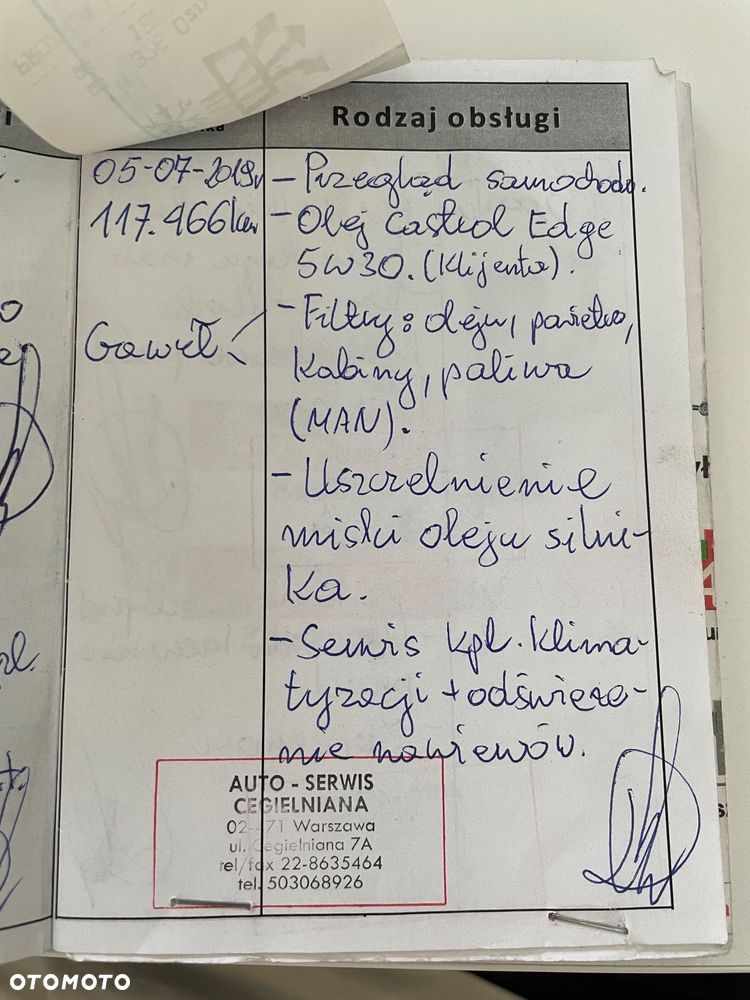 Rodzaj obsługi
05-07-2019r
117.466km
Gaweł
- Przegląd samochodu.
- Olej Castrol Edge
5W30. (Klijenta).
- Filtry: oleju, powietrza,
Kabiny, paliwa
(MAN).
- Uszczelnienie
miski oleju silni-
ka.
- Serwis kpl. Klima-
tyzacji + odświeża-
nie nawiewów.
AUTO - SERWIS
CEGIELNIANA
02-471 Warszawa
ul. Cegielniana 7A
tel/fax 22-8635464
tel. 503068926
OTOMOTO